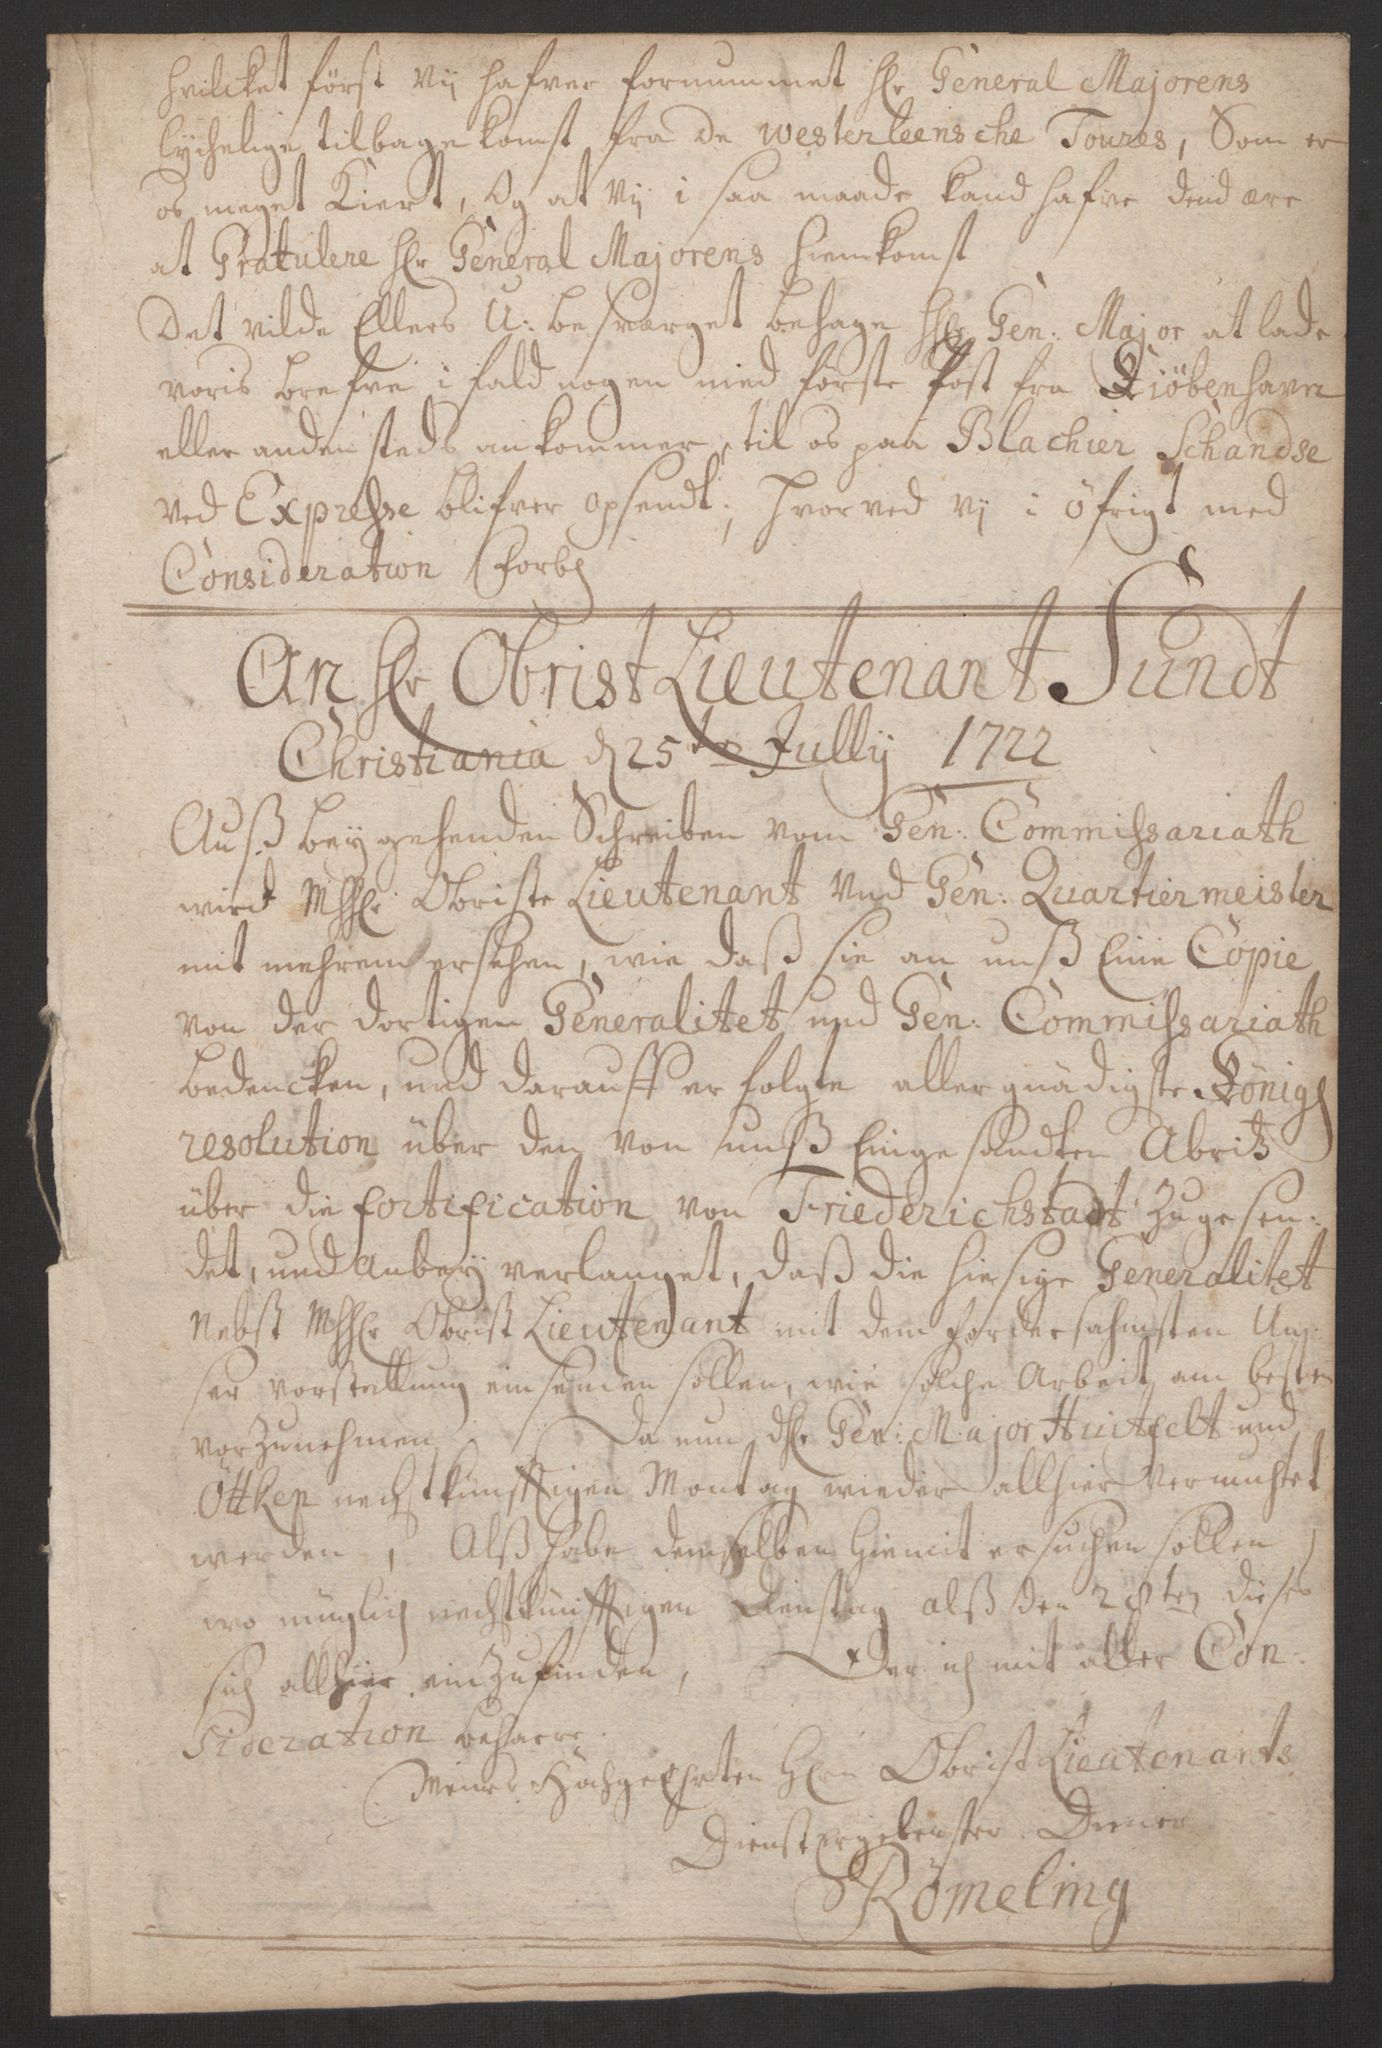 hvilcket først vij hafver fornummet Hr General Majorens
lychelige tilbage komst fra de westerleensche Toures, Som er
os meget Kiert, Og at vij i saa maade kand hafve dend ære
at Gratulere Hr General Majorens hiemkomst
Det vilde Ellers U: besværget behage HHr Gen: Major at lade
voris brefve i fald nogen med förste Post fra Kiöbenhavn
eller anden steds ankommer, til os paa Blachier Schandse
ved Expresse blifver opsendt; hvorved vij i öfrigt med
Consideration Forbl
An Hr Obrist Lieutenant Sundt
Christiania d 25ten Jullij 1722
Auß beygehenden Schreiben vom Gen: Commissariath
wird MhHr Obriste Lieutenant und Gen: Quartiermeister
mit mehrem ersehen, wie daß sie an unß Eine Copie
von der dortigen Generalitet und Gen: Commissariath
bedencken, und darauff erfolgte allergnädigste Königl
resolution über den von unß Eingesandten Abriß
über die Fortification von Friederichstadt zugesen:
det, und anbey verlanget, daß die hiesige Generalitet
Nebst MhHr Obrist Lieutenant mit dem fordersahmsten Un:
ser vorstellung einsenden sollen, wie solche Arbeit am besten
vorzunehmen. Da nun dHr Gen: Major Huitfelt und
Öttken nechstkünfftigen Montag wieder allhier vermuhtet
werden, Alß habe demselben hiemit ersuchen sollen,
wo müglich nechstkünfftigen Dienstag alß den 28ten dieses
sich allhier einzufinden, Der ich mit aller Con:
sideration beharre.
Meines Hochgeehrten Hrn Obrist Lieutenants
Dienstergebenster Diener
Römeling